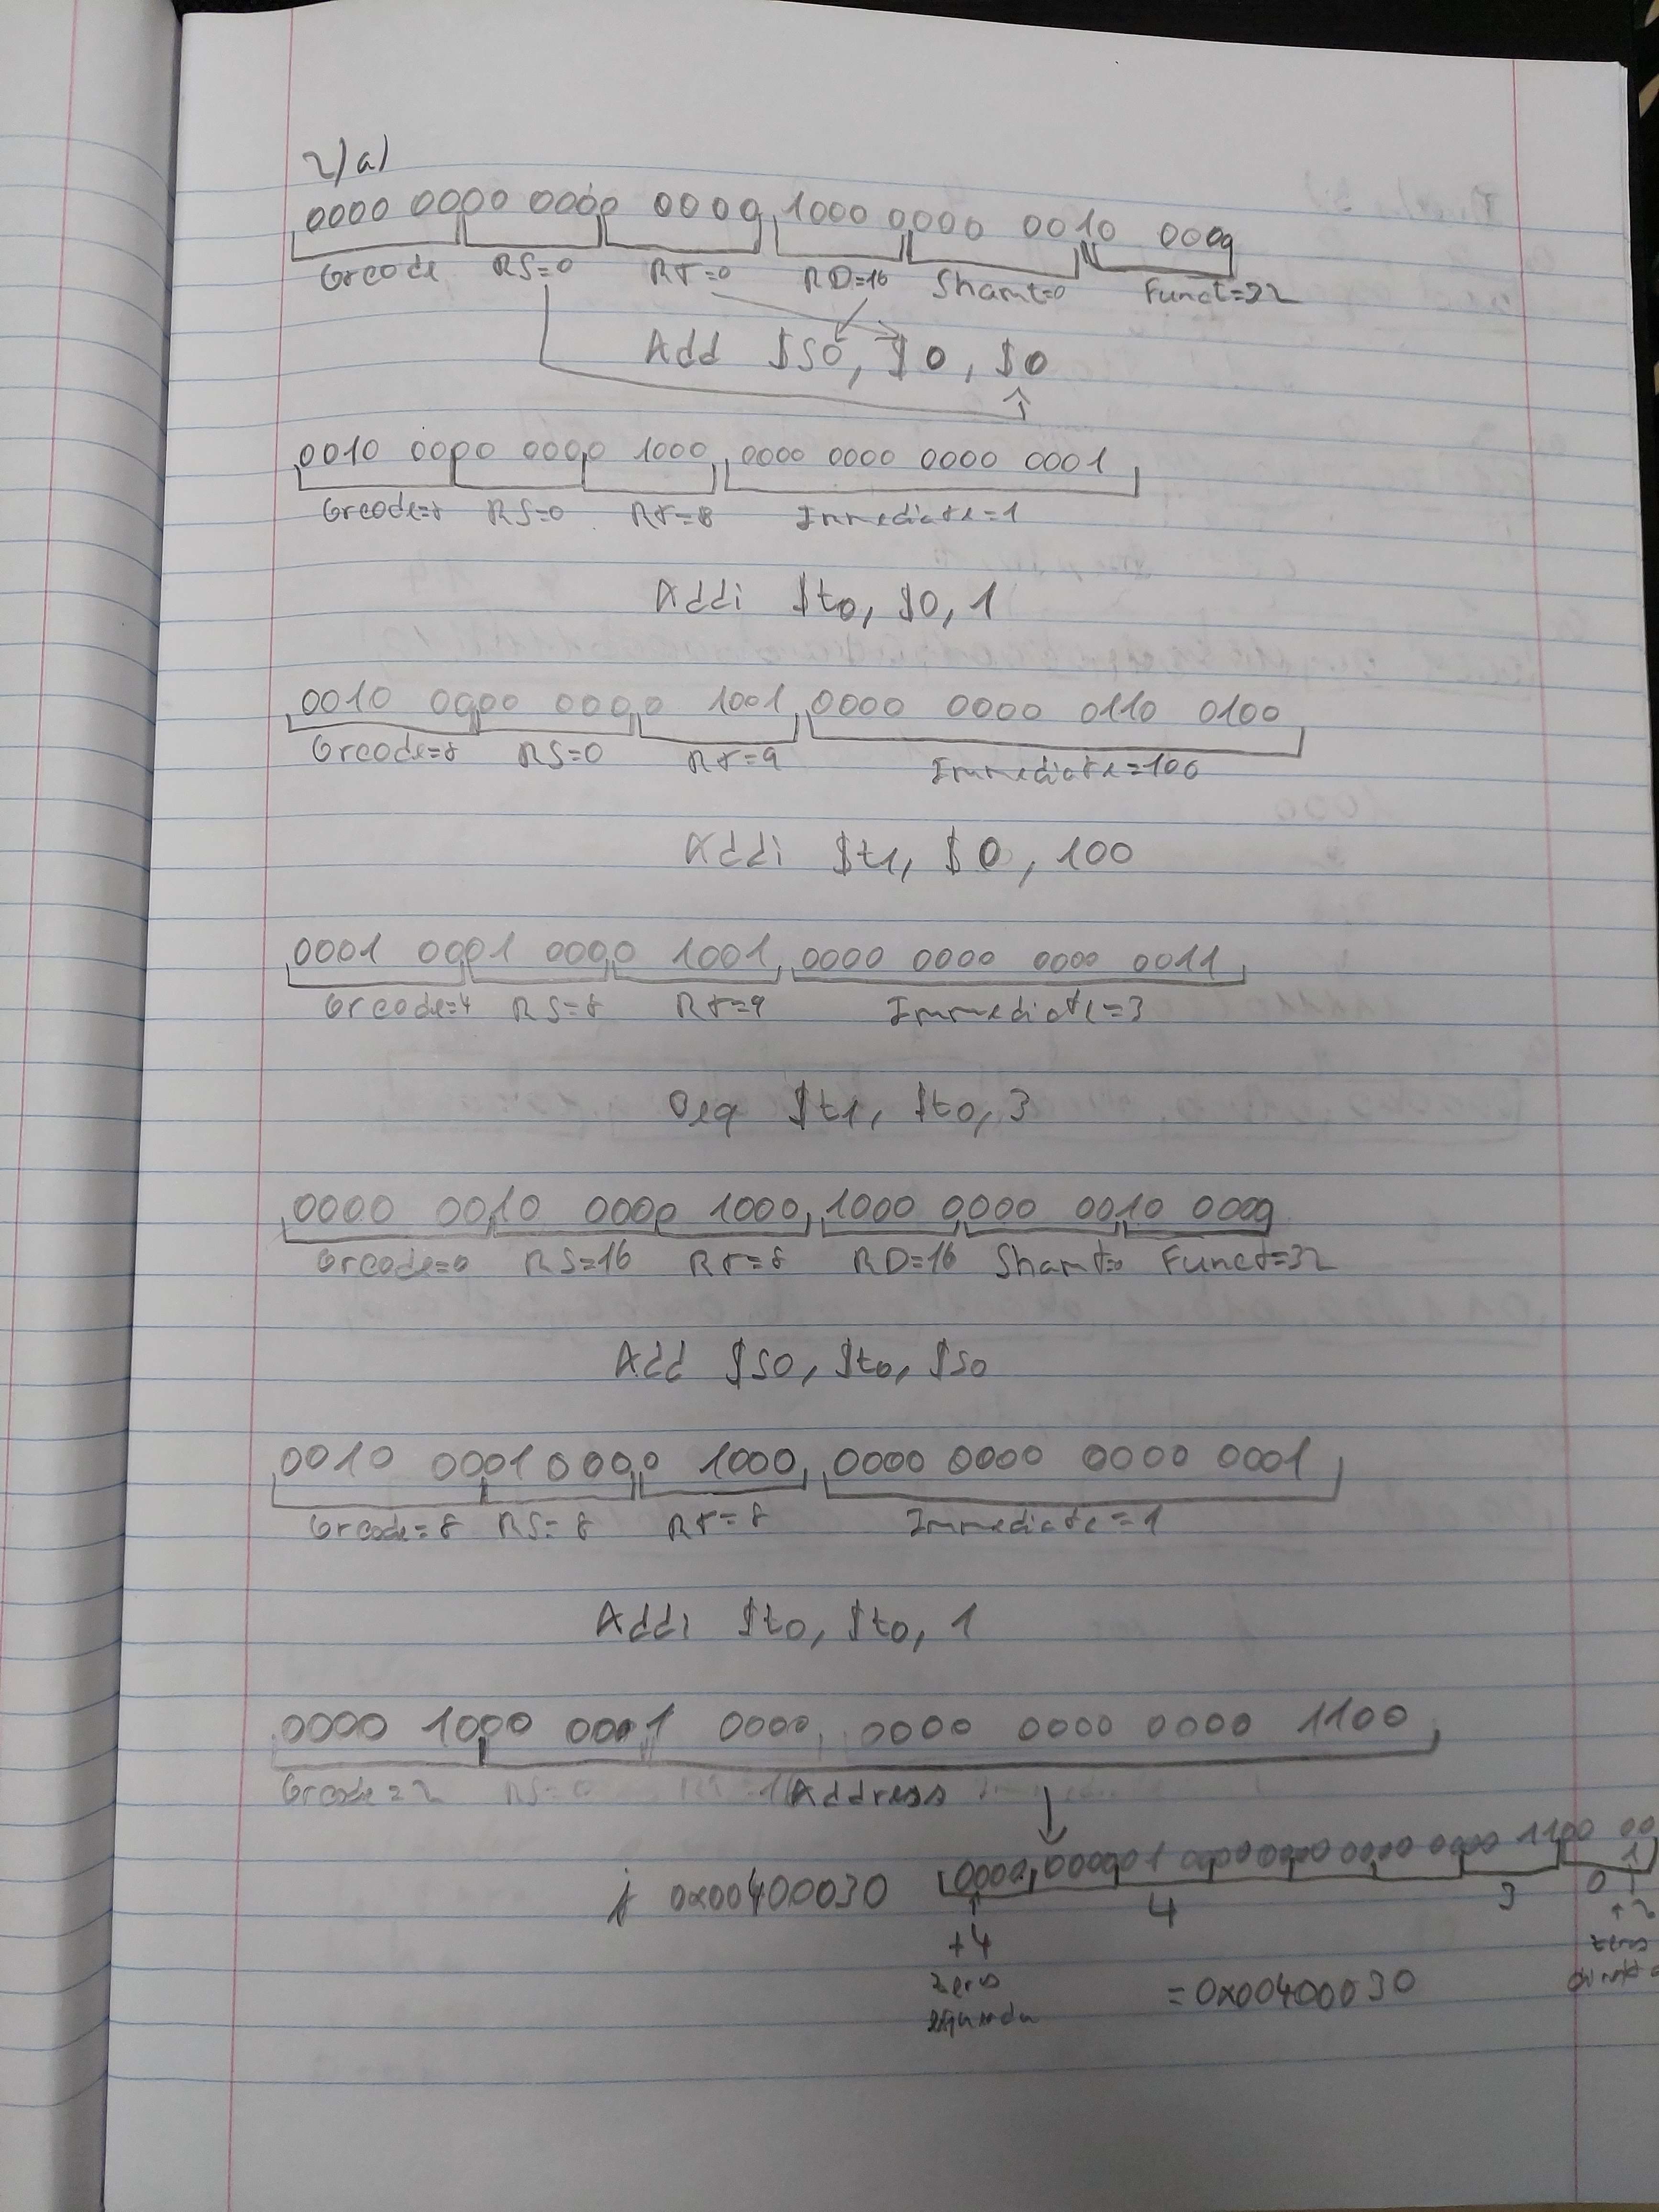 2) a)
0000 0000 0000 0000 1000 0000 0010 0000
Opcode RS=0 RT=0 RD=16 Shamt=0 Funct=32
Add $s0, $0, $0
0010 0000 0000 1000 0000 0000 0000 0001
Opcode=8 RS=0 RT=8 Immediate=1
Addi $t0, $0, 1
0010 0000 0000 1001 0000 0000 0110 0100
Opcode=8 RS=0 RT=9 Immediate=100
Addi $t1, $0, 100
0001 0001 0000 1001 0000 0000 0000 0011
Opcode=4 RS=8 RT=9 Immediate=3
Beq $t1, $t0, 3
0000 0010 0000 1000 1000 0000 0010 0000
Opcode=0 RS=16 RT=8 RD=16 Shamt=0 Funct=32
Add $s0, $t0, $s0
0010 0001 0000 1000 0000 0000 0000 0001
Opcode=8 RS=8 RT=8 Immediate=1
Addi $t0, $t0, 1
0000 1000 0001 0000 0000 0000 0000 1100
Opcode=2 Address
j 0x00400030
4 3 0
+4 +2
zeros zeros
esquerda
=0x00400030